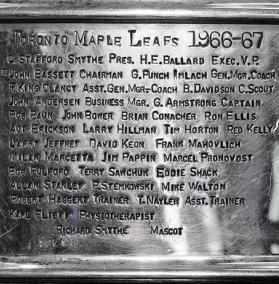 Toronto Maple Leafs 1966-67
C. Stafford Smythe Pres. H.E. Ballard Exec. V.P.
John Bassett Chairman G. Punch Imlach Gen. Mgr. Coach
F. King Clancy Asst. Gen. Mgr.-Coach B. Davidson C. Scout
John Andersen Business Mgr. G. Armstrong Captain
Bob Baun John Bower Brian Conacher Ron Ellis
Aut Erickson Larry Hillman Tim Horton Red Kelly
Larry Jeffrey David Keon Frank Mahovlich
Milan Marcetta Jim Pappin Marcel Pronovost
Bob Pulford Terry Sawchuk Eddie Shack
Allan Stanley P. Stemkowski Mike Walton
Robert Haggert Trainer T. Nayler Asst. Trainer
Karl Elieff Physiotherapist
Richard Smythe Mascot